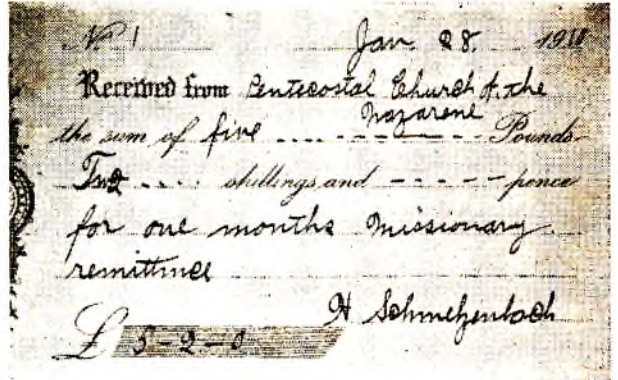 No 1 Jan. 28. 1911
Received from Pentecostal Church of the
Nazarene
the sum of five Pounds
Two shillings and pence
for one months missionary
remittance
H Schmelzenbach
£ 5-2-0